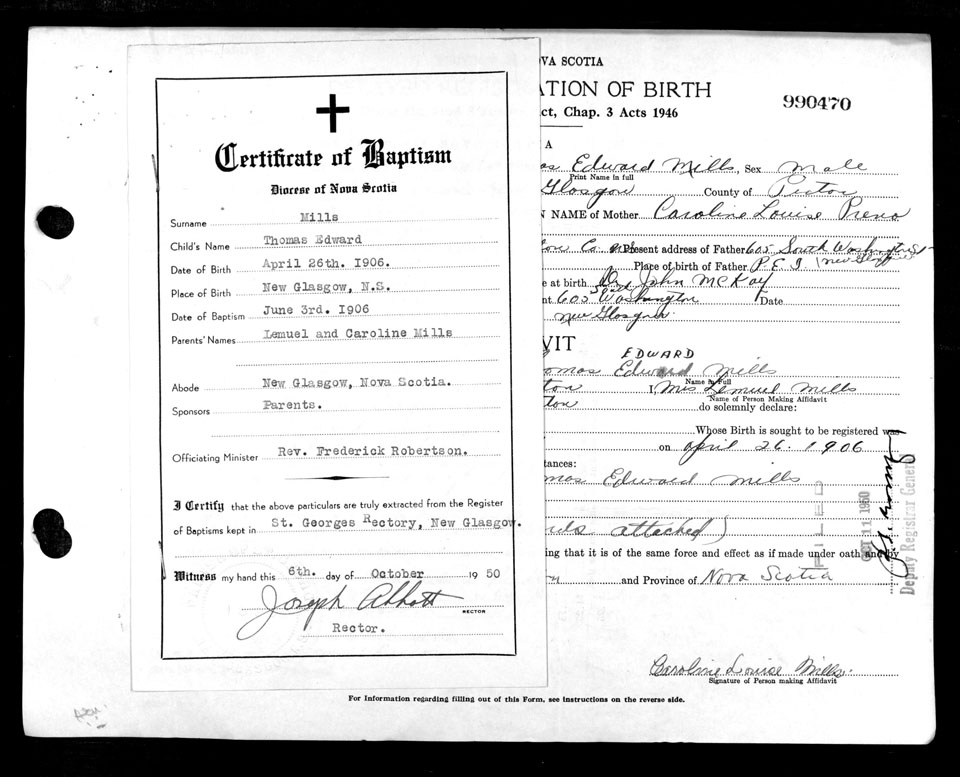 Certificate of Baptism
Diocese of Nova Scotia
Surname Mills
Child's Name Thomas Edward
Date of Birth April 26th. 1906.
Place of Birth New Glasgow, N.S.
Date of Baptism June 3rd. 1906
Parents' Names Lemuel and Caroline Mills
Abode New Glasgow, Nova Scotia.
Sponsors Parents.
Officiating Minister Rev. Frederick Robertson.
I Certify that the above particulars are truly extracted from the Register
of Baptisms kept in St. Georges Rectory, New Glasgow.
Witness my hand this 6th. day of October 1950
Joseph Abbott
RECTOR
Rector.
OVA SCOTIA
ATION OF BIRTH
990470
ct, Chap. 3 Acts 1946
A
as Edward Mills, Sex Male
Print Name in full
Glasgow County of Pictou
N NAME of Mother Caroline Louise
Present address of Father 605 South Washington St
(New Glasgow)
Place of birth of Father P.E.I
e at birth Dr John McKay
t 605 Washington Date
New Glasgow
VIT
EDWARD
omas Edward Mills
Name in Full
ton I, Mrs Lemuel Mills
Name of Person Making Affidavit
ton do solemnly declare:
Whose Birth is sought to be registered was
on April 26. 1906
tances:
mas Edward Mills
attached)
ing that it is of the same force and effect as if made under oath and by
and Province of Nova Scotia
FILED
OCT 11 1950
Deputy Registrar General
Caroline Louise Mills
Signature of Person making Affidavit
For Information regarding filling out of this Form, see instructions on the reverse side.